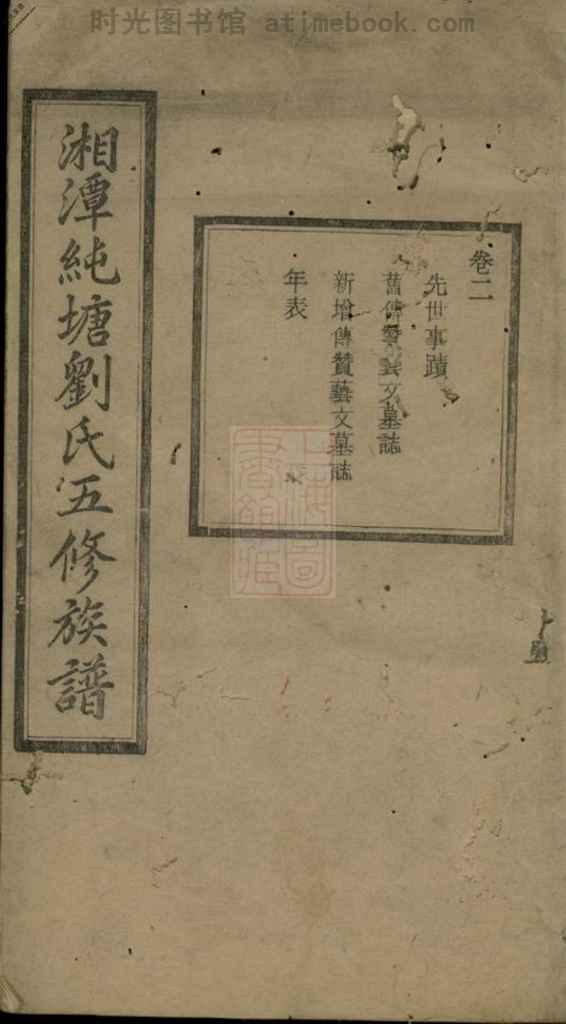 时光图书馆 atimebook.com
湘潭純塘劉氏五修族譜
卷二
先世事蹟
舊傳贊藝文墓誌
新增傳贊藝文墓誌
年表